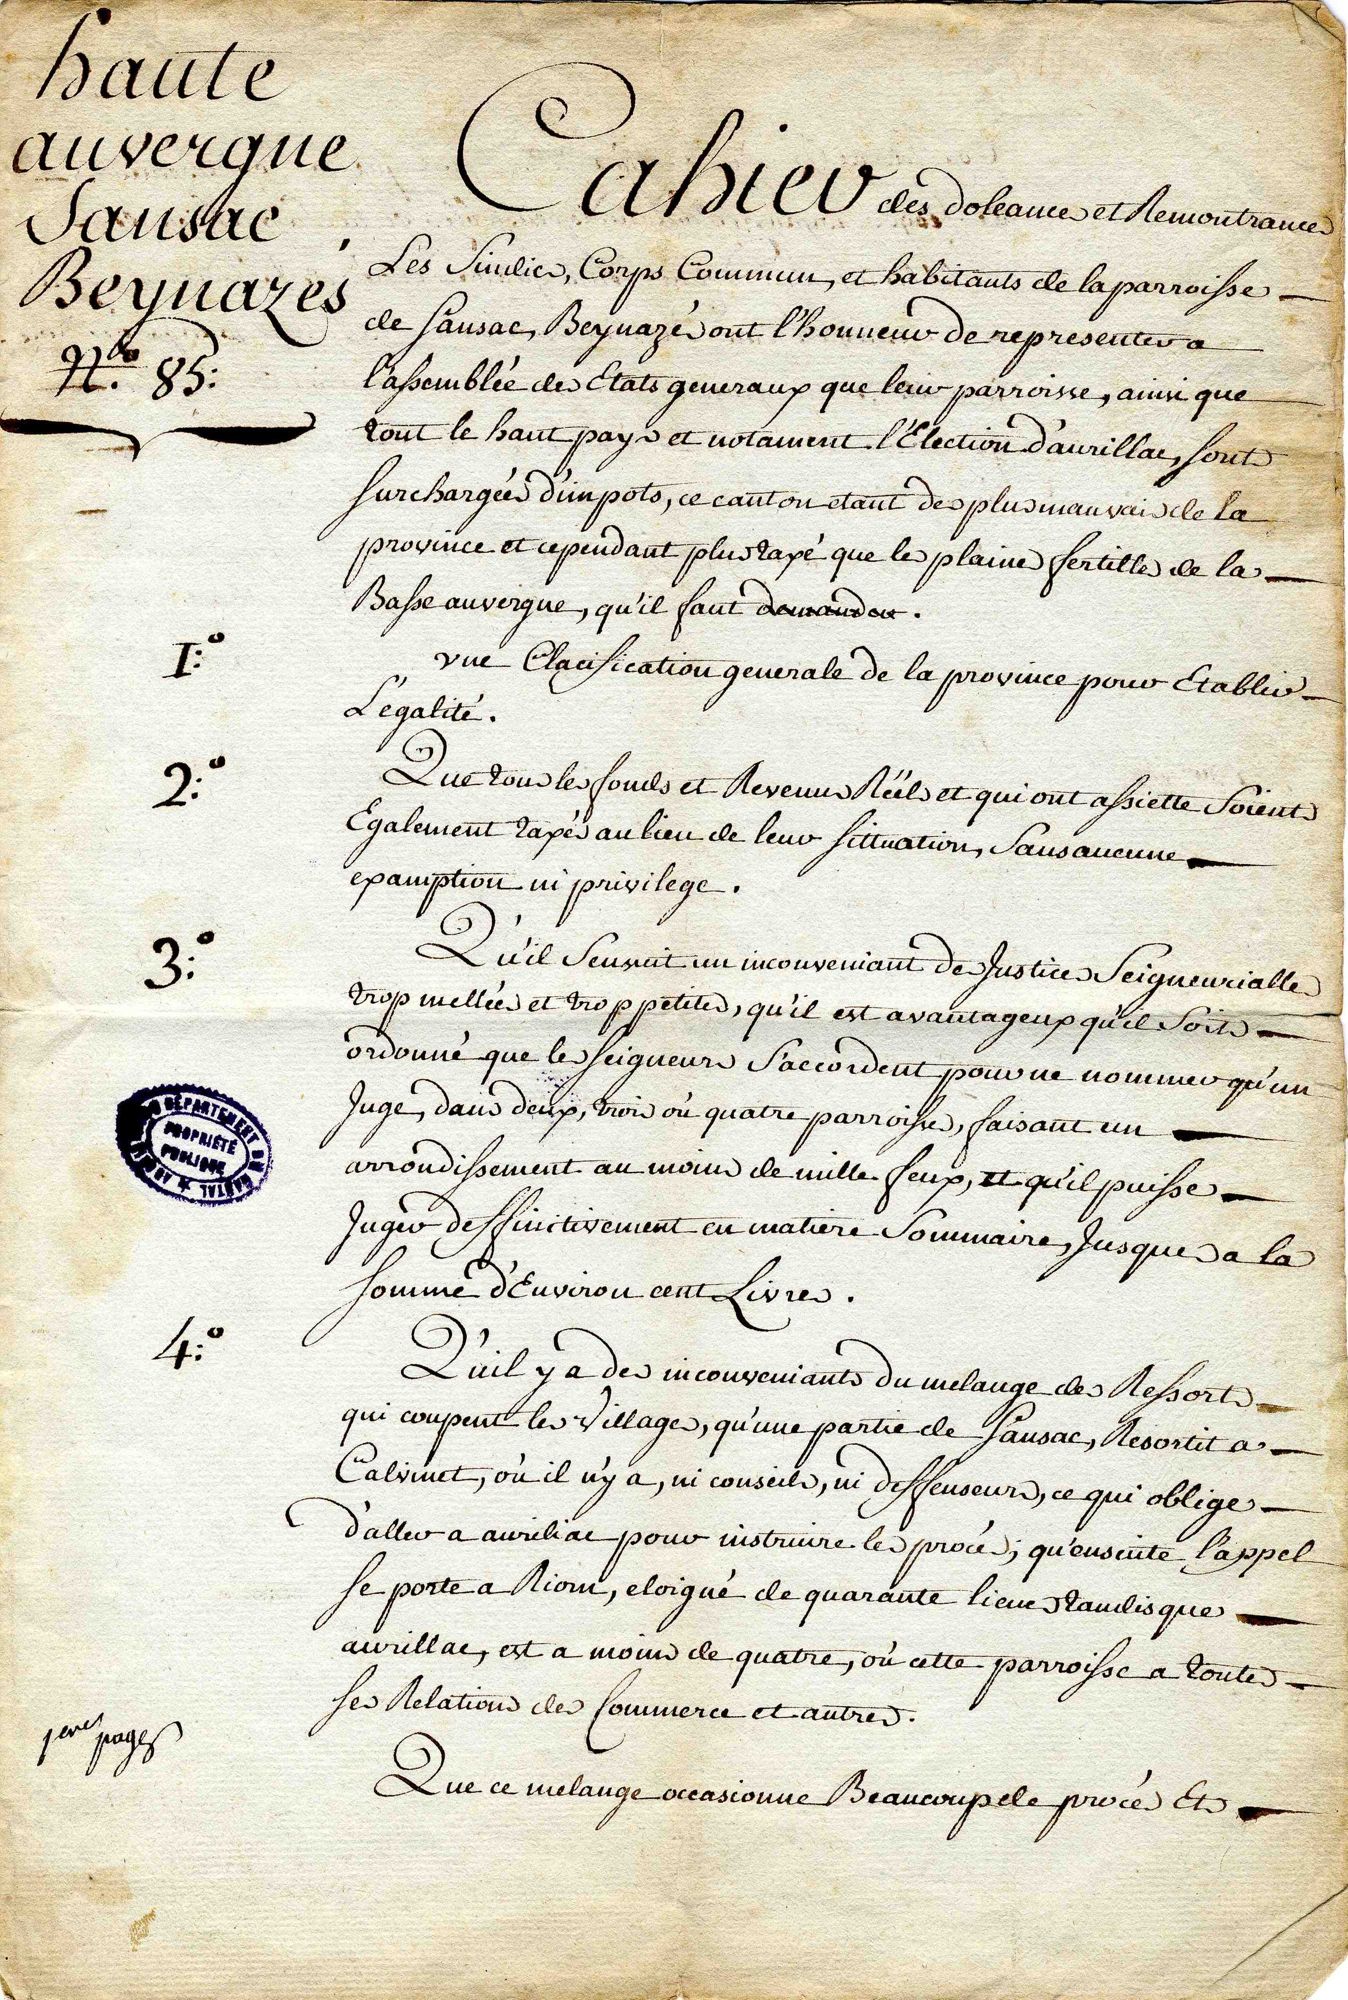 haute
auvergne
Sansac
Beynazés
N.º 85:
Cahier des doleances et Remontrances
Les Sindics, Corps Commun, et habitants de la parroisse
de Sansac, Beynazés ont l'honneur de representer a
l'assemblée des Etats generaux que leur parroisse, ainsi que
tout le haut pays et notament l'Election d'aurillac, sont
surchargées d'impots, ce canton etant des plus mauvais de la
province et cependant plus taxé que les plaines fertilles de la
Basse auvergne, qu'il faut demander.
1:º
une Clacification generale de la province pour Etablir
L'egalité.
2:º
Que tous les fonds et Revenus Réels et qui ont assiette Soient
Egalement taxés au lieu de leur sittuation, Sans aucune
examption ni privilege.
3:º
Qu'il Seuvrit un inconveniant des Justices Seigneurialles
trop mellées et trop petites, qu'il est avantageux qu'il Soit
ordonné que les seigneurs S'accordent pour ne nommer qu'un
Juge, dans deux, trois où quatre parroisses, faisant un
arrondissement au moins de mille feux, et qu'il puisse
Juger deffinitivement en matiere Sommaire, Jusques a la
somme d'Environ cent Livres.
4:º
Qu'il y a des inconveniants du melange des Ressorts
qui coupent les Villages, qu'une partie de Sansac, Resortit a
Calvinet, où il n'y a, ni conseils, ni deffenseurs, ce qui oblige
d'aller a aurillac pour instruire les procés; qu'ensuite l'appel
se porte a Riom, eloigné de quarante lieues tandis que
aurillac, est a moins de quatre, où cette parroisse a toutes
ses Relations de Commerce et autres.
1ere page
Que ce melange occasionne Beaucoup de procés Et
ARCHIVES DU DÉPARTEMENT DU CANTAL
PROPRIÉTÉ
PUBLIQUE